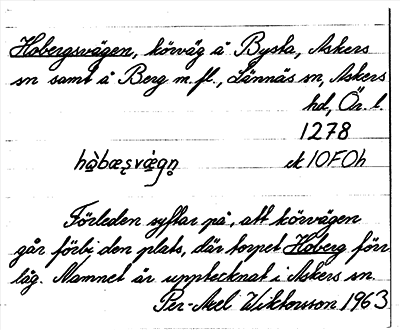 Hobergsvägen, körväg å Bysta, Askers
sn samt å Berg m.fl., Lännäs sn, Askers
hd, Ör. l.
1278
ek 10F0h
Förleden syftar på, att körvägen
går förbi den plats, där torpet Hoberg förr
låg. Namnet är upptecknat i Askers sn.
Per-Axel Wiktorsson 1963